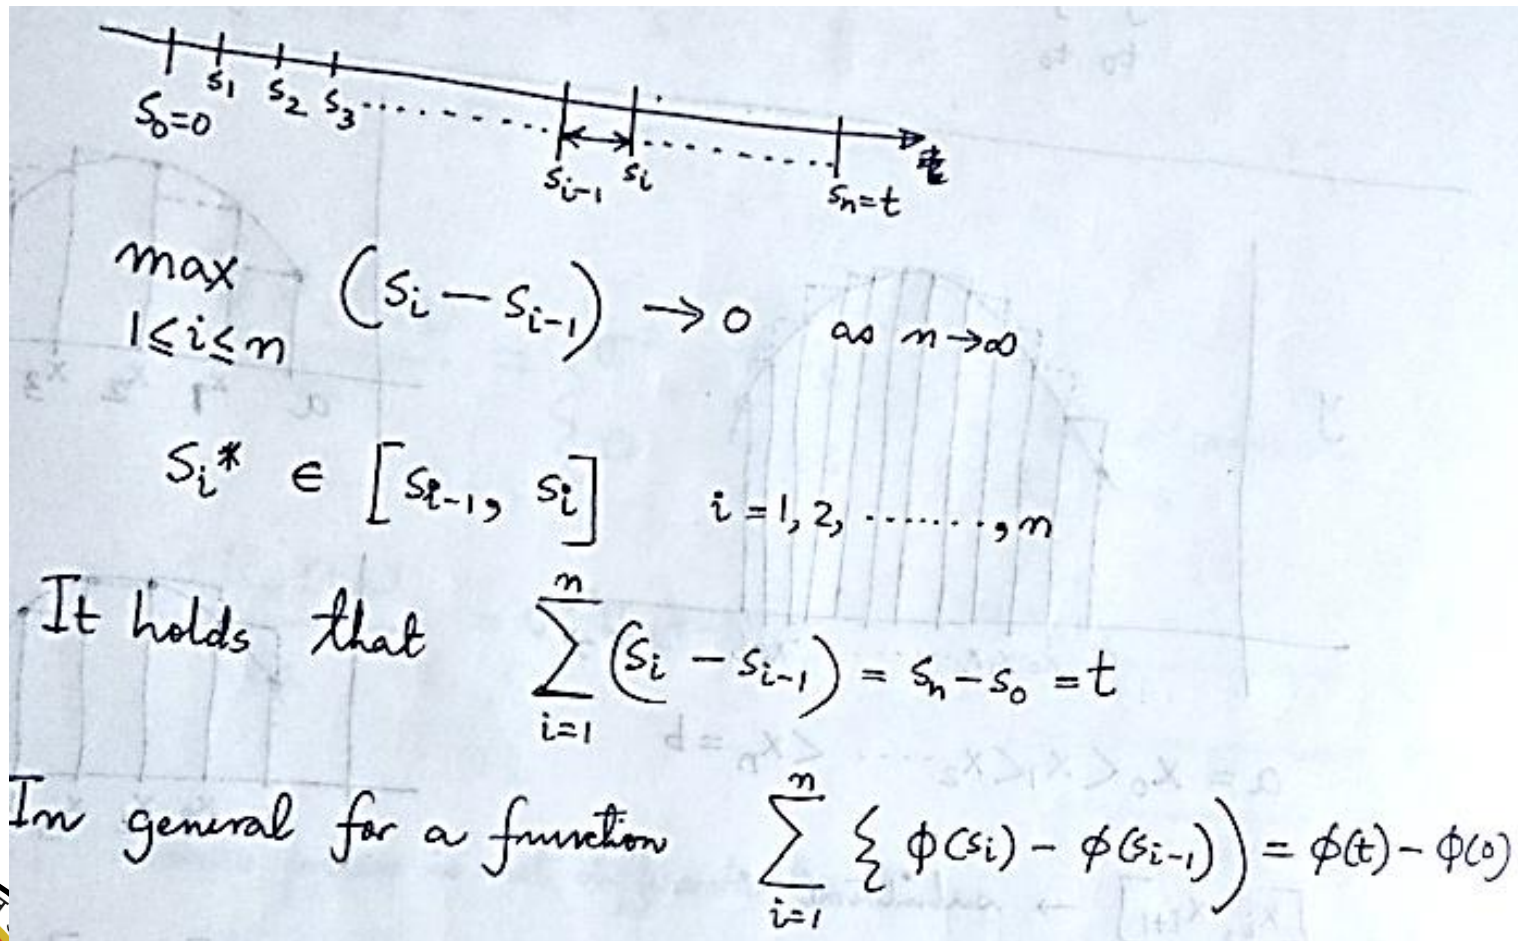 S₀=0 S₁ S₂ S₃ ........ Sᵢ₋₁ Sᵢ ........ Sₙ=t
max (Sᵢ − Sᵢ₋₁) → 0 as n→∞
1≤i≤n
Sᵢ* ∈ [Sᵢ₋₁, Sᵢ] i = 1, 2, ......., n
It holds that ∑ᵢ₌₁ⁿ (Sᵢ − Sᵢ₋₁) = Sₙ − S₀ = t
In general for a function ∑ᵢ₌₁ⁿ { ϕ(Sᵢ) − ϕ(Sᵢ₋₁)) = ϕ(t) − ϕ(0)